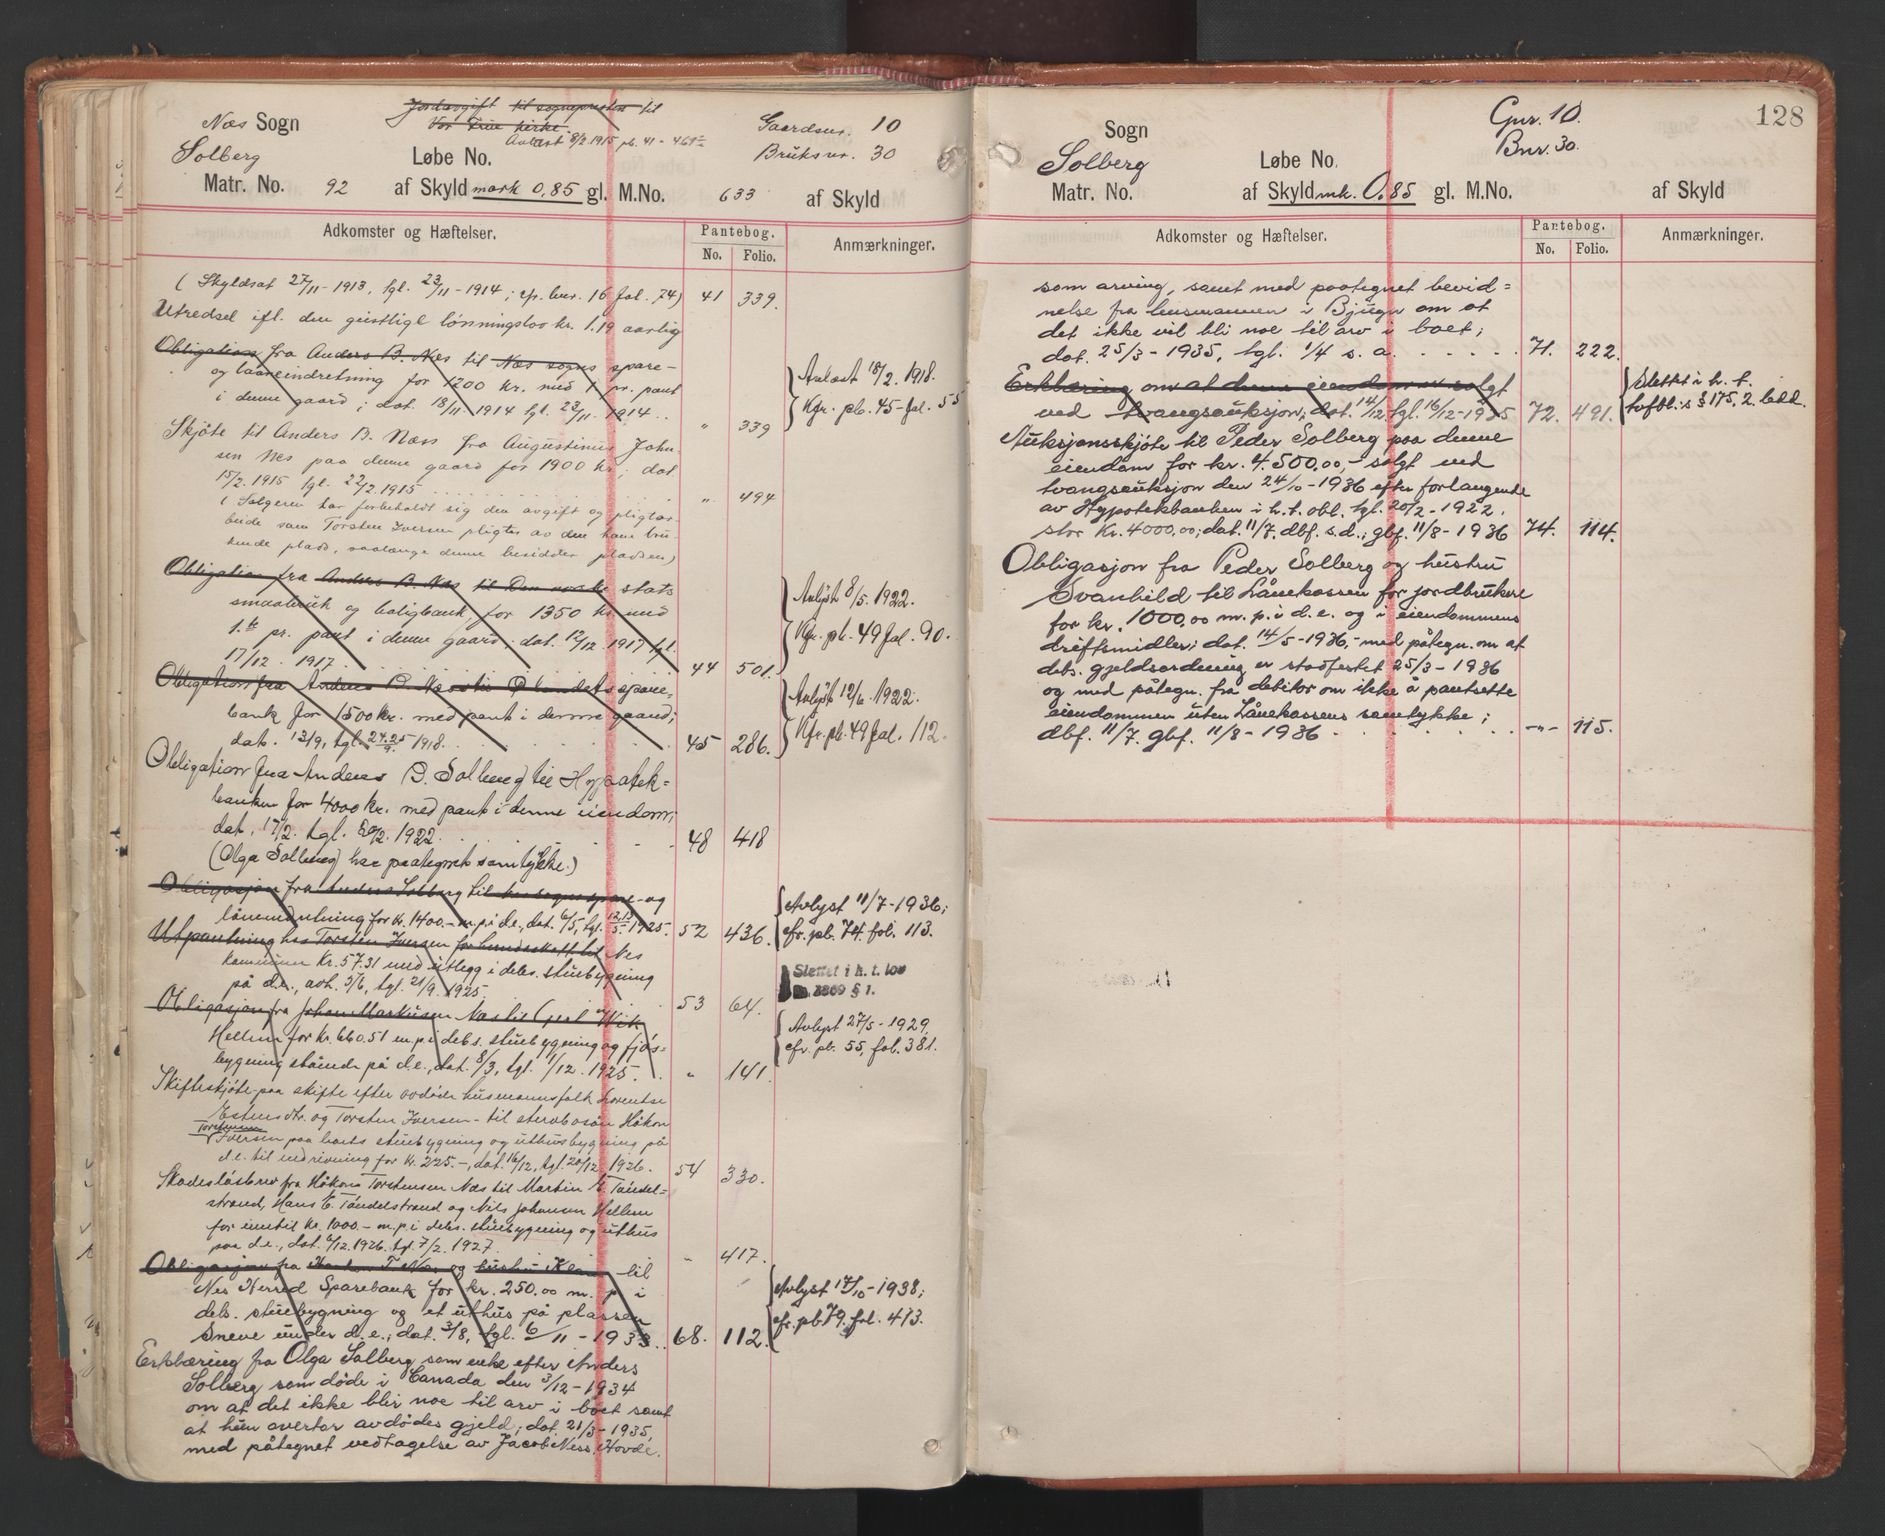 Næs Sogn
Jordavgift til sognepresten til
Vor Frue kirke.
Avløst 8/2 1915 pb. 41 - 469
Gaardsnr. 10
Bruksnr. 30
Solberg
Løbe No.
Matr. No. 92 af Skyld mark 0,85 gl. M.No. 633 af Skyld
Adkomster og Hæftelser.
Pantebog.
No. Folio.
Anmærkninger.
( Skyldsat 27/11 - 1913, tgl. 23/11 - 1914 ; cp. bur. 16 fol. 74) 41 339.
Utredsel ifl. den geistlige lønningslov kr. 1.19 aarlig
Obligation fra Anders B. Næs til Næs sogns spare-
og laaneindretning for 1200 kr. med 1 pr. pant
i denne gaard ; dat. 18/11 1914 tgl. 23/11 - 1914 .. " 339
Avlæst 18/2. 1918.
Kfr. pb. 45 - fol. 55
Skjøte til Anders B. Næss fra Augustinus John-
sen Nes paa denne gaard for 1900 kr ; dat.
15/2. 1915 tgl. 22/2. 1915 " 494
( Sælgeren har forbeholdt sig den avgift og pligtar-
beide som Torsten Iversen pligter av den ham bru-
kende plads, saalænge denne besidder pladsen)
Obligation fra Anders B. Næs til Den norske stats
smaabruk og boligbank, for 1350 kr. med
1.ste pr. pant i denne gaard ; dat. 12/12. 1917 tgl.
17/12. 1917. 44 501.
Avlyst 8/5. 1922.
Kfr. pb. 49 fol. 90.
Obligation fra Anders B. Næs til Ørlandets spare-
bank for 1500 kr. med pant i denne gaard ;
dat. 13/9, tgl. 24.25/9. 1918. 45 286.
Avlyst 12/6. 1922.
Kfr. pb. 49 fol. 112.
Obligation fra Anders B. Solberg til Hypotek-
banken for 4000 kr. med pant i denne eiendom ;
dat. 17/2. tgl. 20/2. 1922. 48 418
(Olga Solberg har paategnet samtykke.)
Obligasjon fra Anders Solberg til Nes sogns spare- og
låneindretning for kr. 1400.- m. p. i d. e., dat. 6/5, tgl. 12.13/5 1925. 52 436.
Avlyst 11/7 - 1936 ;
cfr. pb. 74. fol. 113.
Utpantning hos Torsten Iversen for hundeskatt til Nes
kommune kr. 57.31 med utlegg i debs. stuebygning
på d. e., avh. 5/6, tgl. 21/9. 1925 53 64.
Slettet i h. t. lov
1869 § 1.
Obligasjon fra Johan Markusen Næs til Carl Wik
Hellem for kr. 660.51 m. p. i debs. stuebygning og fjøs-
bygning stående på d. e., dat. 8/3, tgl. 1/12. 1925. " 141.
Avlyst 27/5 - 1929,
cfr. pb. 55, fol. 381.
Skifteskjøte paa skifte efter avdøde husmannsfolk Lorentse
Estensdtr. og Torsten Iversen - til stervbosøn Håkon
Torstensen
Iversen paa boets stuebygning og uthusbygning på
d. e. til nedrivning for kr. 225.-, dat. 16/12, tgl. 20/12. 1926. 54 330.
Skadesløsbrev fra Håkon Torstensen Næs til Martin E. Tøndel-
strand, Hans E. Tøndelstrand og Nils Johansen Hellem
for inntil kr. 1000.- m. p. i debs. stuebygning og uthus
paa d. e., dat. 6/12. 1926. tgl. 7/2. 1927. - 417.
Obligasjon fra Hakon T. Næs og hustru Klara til
Nes Herred Sparebank for kr. 250.00 m. p. i
debs. stuebygning og et uthus på plassen
Sneve under d. e. ; dat. 3/8, tgl. 6/11 - 1933.. 68. 112.
Avlyst 17/10 - 1938 ;
cfr. pb. 79. fol. 473.
Erklæring fra Olga Solberg som enke efter Anders
Solberg som døde i Canada den 3/12 - 1934
om at det ikke blir noe til arv i boet samt
at hun overtar avdødes gjeld ; dat. 21/3 - 1935,
med påtegnet vedtagelse av Jacob Ness, Hovde.
Sogn
Gnr. 10.
Bnr. 30.
128
Solberg
Løbe No.
Matr. No. af Skyld mk. 0,85 gl. M.No. af Skyld
Adkomster og Hæftelser.
Pantebog.
No. Folio.
Anmærkninger.
som arving, samt med paategnet bevid=
nelse fra lensmannen i Bjugn om at
det ikke vil bli noe til arv i boet ;
dat. 25/3 - 1935, tgl. 1/4 s. a. 71. 222.
Erklæring om at denne eiendom er solgt
ved tvangsauksjon, dat. 14/12 tgl. 16/12 - 1935 72. 491.
Slettet i h. t.
tvfbl.s § 175, 2. ledd.
Auksjonsskjøte til Peder Solberg paa denne
eiendom for kr. 4.500,00,- solgt ved
tvangsauksjon den 24/10 - 1936 efter forlangende
av Hypotekbanken i h. t. obl. tgl. 20/2 - 1922.
stor kr. 4000,00 ; dat. 11/7. dbf. s. d. ; gbf. 11/8 - 1936 74. 114.
Obligasjon fra Peder Solberg og hustru
Svanhild til Lånekassen for jordbrukere
for kr. 1000,00 m. p. i d. e. og i eiendommens
driftsmidler ; dat. 14/5 - 1936, - med påtegn. om at
debs. gjeldsordning er stadfestet 25/3 - 1936
og med påtegn. fra debitor om ikke å pantsette
eiendommen uten Lånekassens samtykke ;
dbf. 11/7. gbf. 11/8 - 1936 -"- 115.